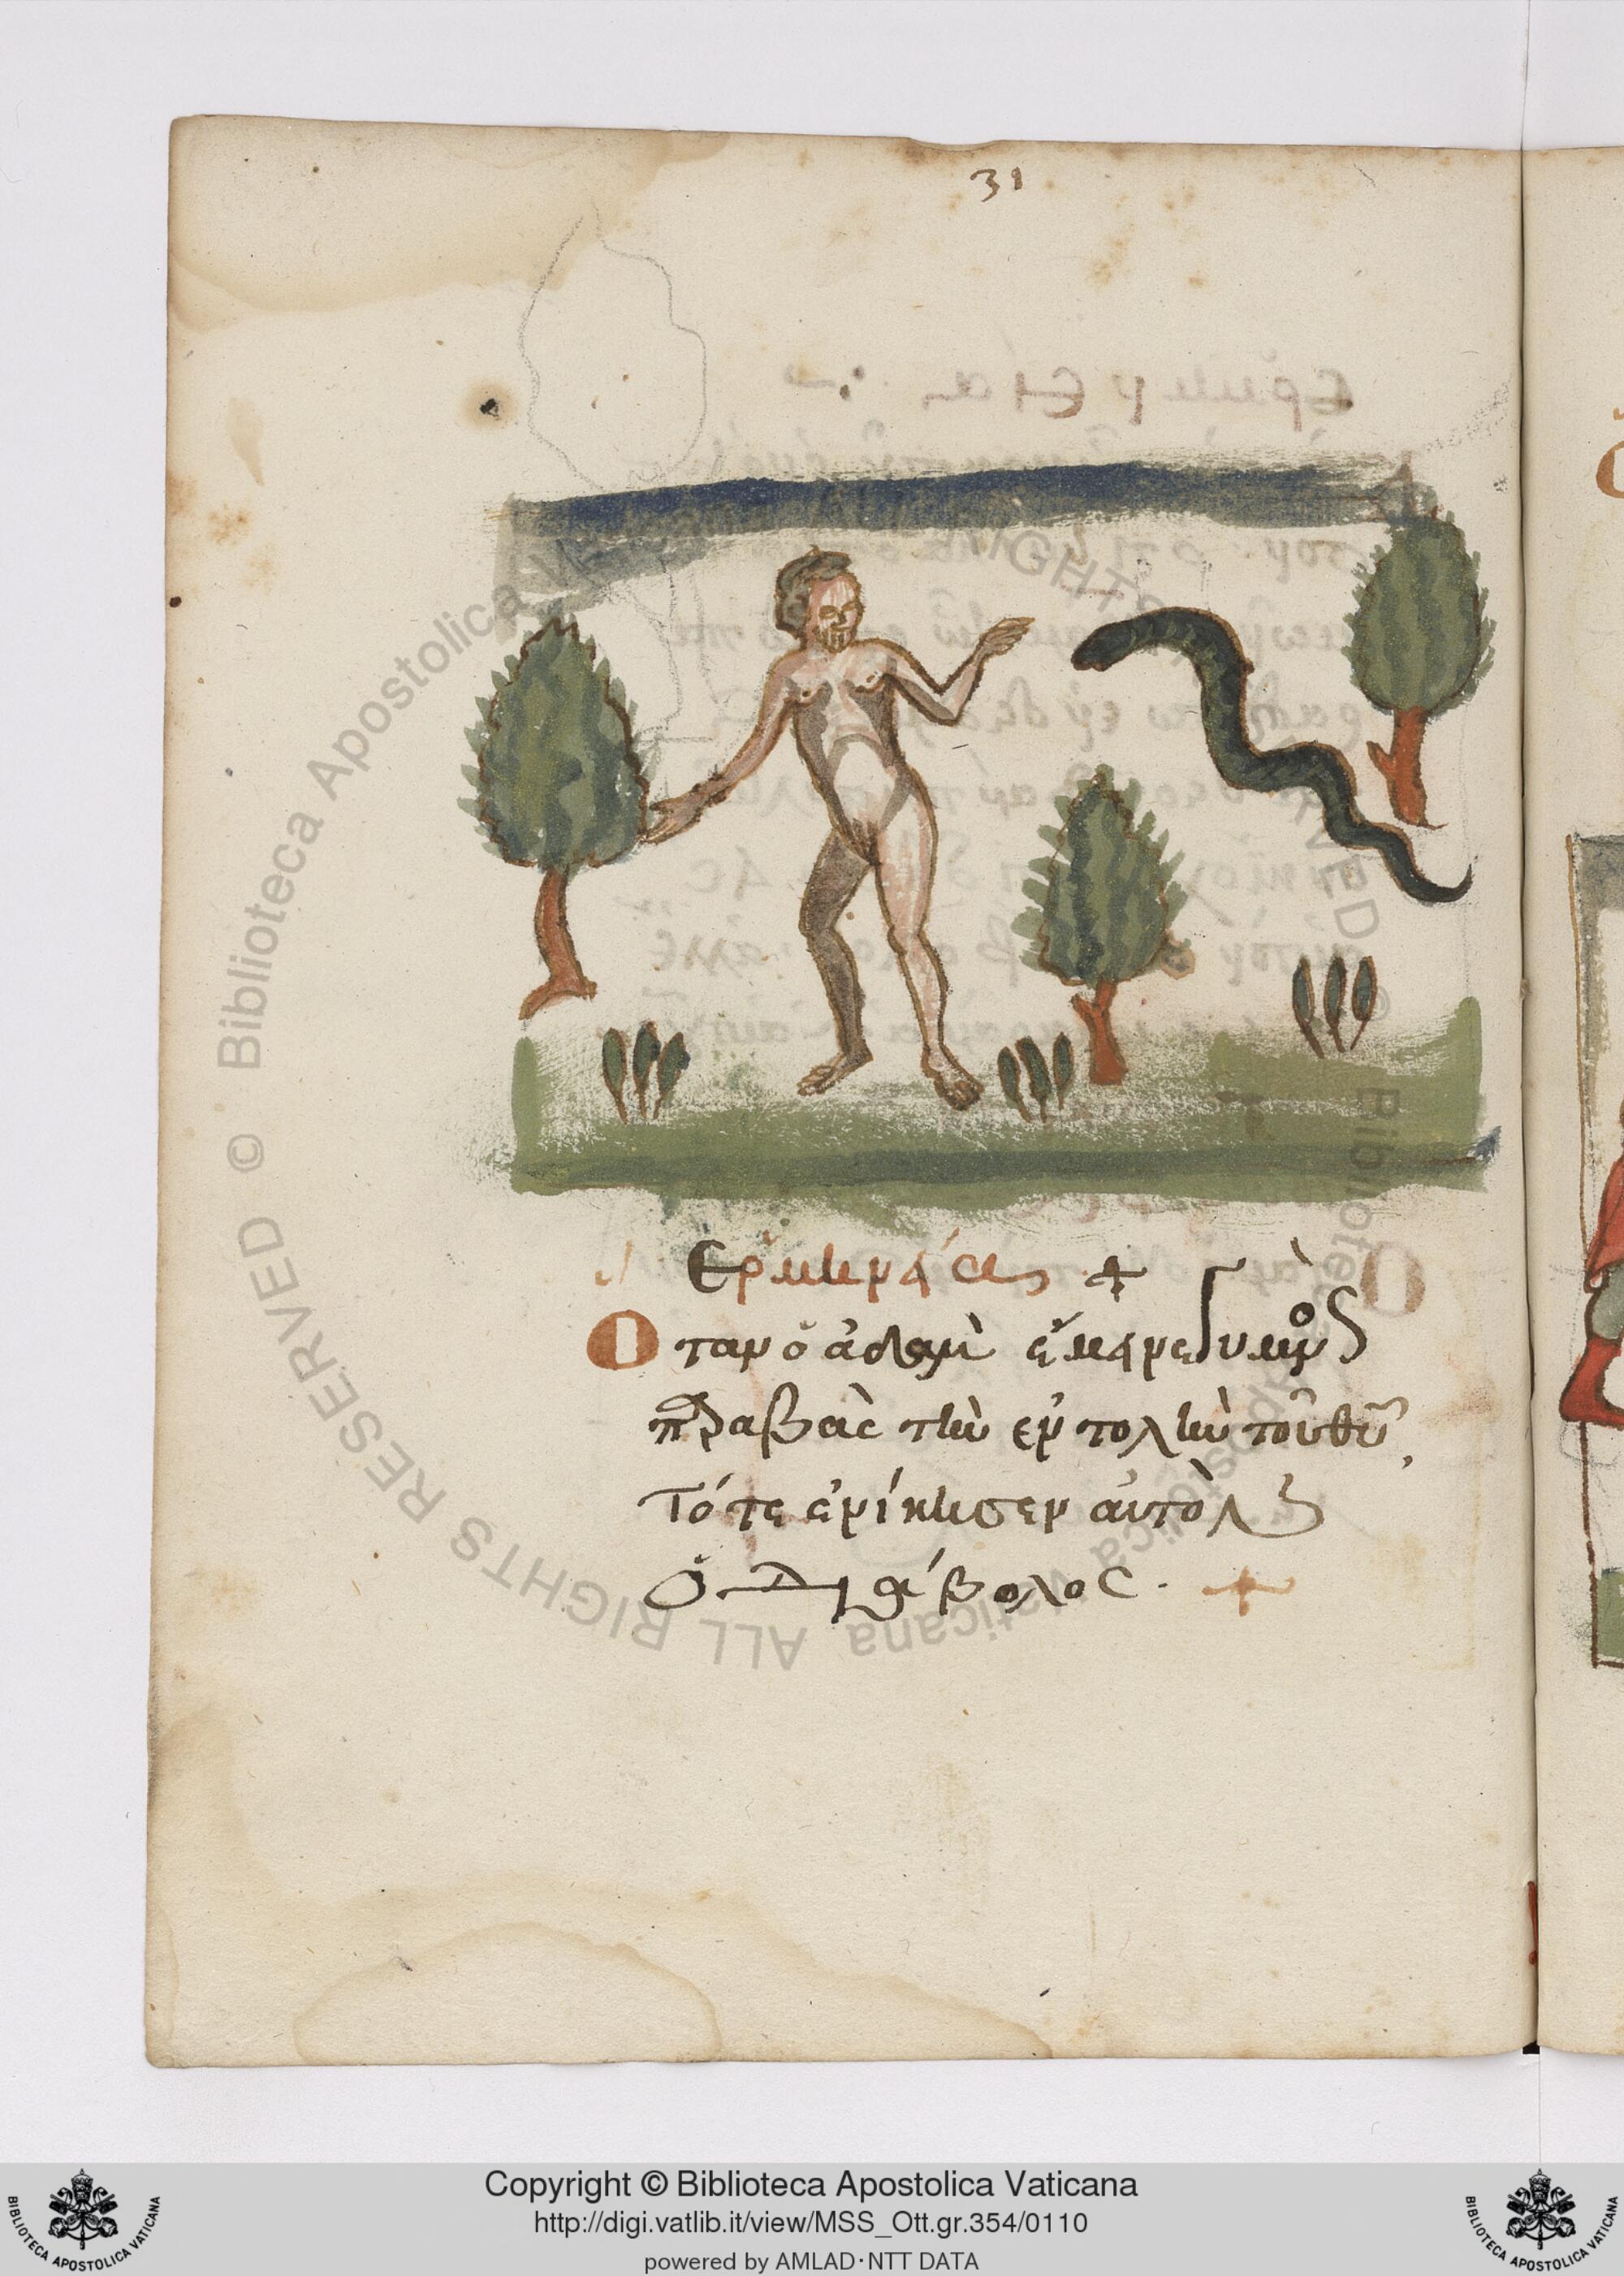 31
Ερμηνία
Όταν ὁ ἀδὰμ
παραβὰς τὴν ἐντολὴν τοῦ θῦ,
Τότε ἐνίκησεν αὐτὸν
Ὁ Διάβολος. +
Biblioteca Apostolica Vaticana ALL RIGHTS RESERVED ©
Copyright © Biblioteca Apostolica Vaticana
http://digi.vatlib.it/view/MSS_Ott.gr.354/0110
powered by AMLAD·NTT DATA
BIBLIOTECA APOSTOLICA VATICANA
BIBLIOTECA APOSTOLICA VATICANA